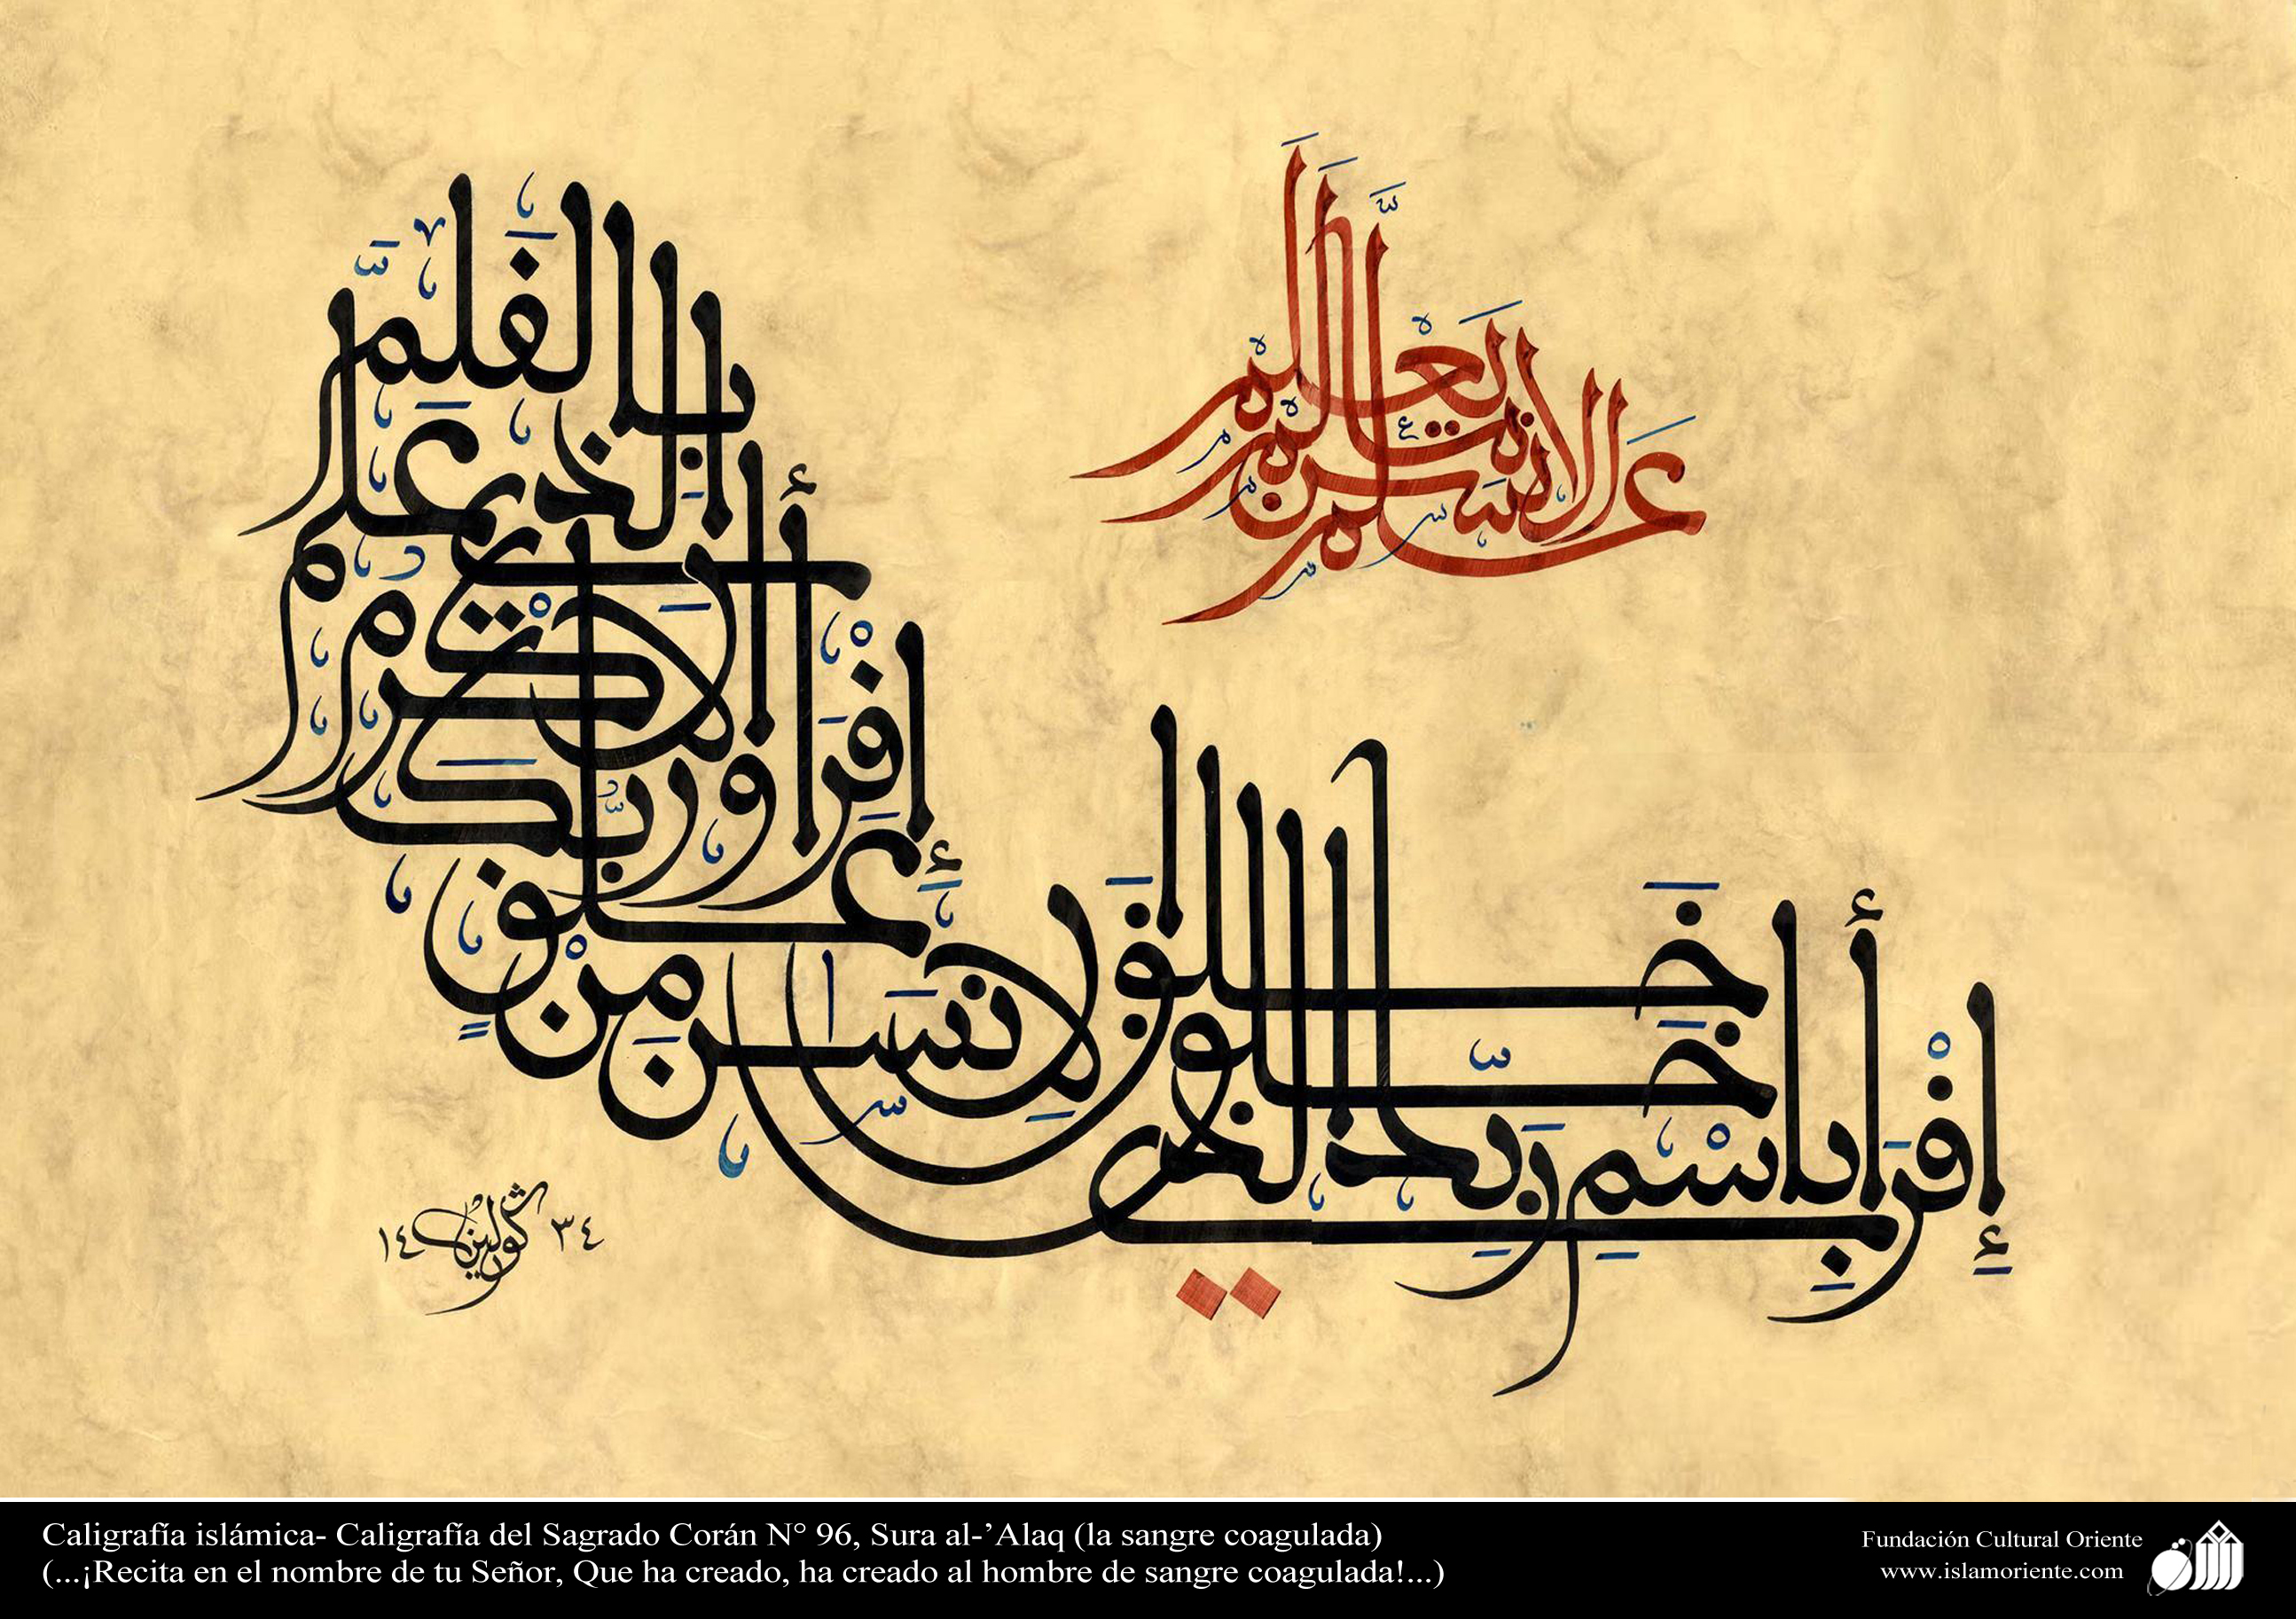 علم الانسن ما لم يعلم
إِقْرَأ بِاسْمِ رَبِّكَ الَّذِي خَلَقَ
خَلَقَ الاِنسَـٰنَ مِنْ عَلَقٍ
إِقْرَأ وَرَبُّكَ الاَكْرَمُ
الَّذِي عَلَّمَ بِالقَلَمِ
١٤٣٤
Caligrafía islámica- Caligrafía del Sagrado Corán N° 96, Sura al-’Alaq (la sangre coagulada)
(...¡Recita en el nombre de tu Señor, Que ha creado, ha creado al hombre de sangre coagulada!...)
Fundación Cultural Oriente
www.islamoriente.com